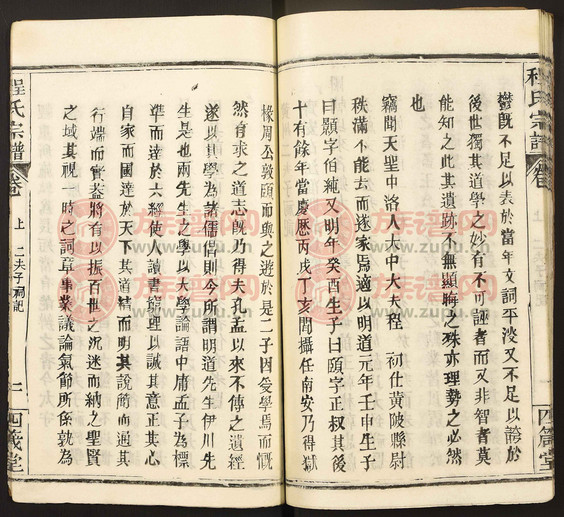 程氏宗譜
卷
上
鬱既不足以表於當年文詞平淡又不足以誇於
後世獨其道學之妙有不可誣者而又非智者莫
能知之此其遺跡不無顯晦之殊亦理勢之必然
也
竊聞天聖中洛人大中大夫程 初仕黃陂縣尉
秩滿不能去而遂家焉適以明道元年壬申生子
曰顥字伯純又明年癸酉生子曰頤字正叔其後
十有餘年當慶歷丙戌丁亥間攝任南安乃得獄
四箴堂
掾周公敦頤而與之遊於是二子因爱學焉而慨
然有求之道志既乃得夫孔孟以來不傳之遺經
遂以其學為諸儒倡則今所謂明道先生伊川先
生是也兩先生之學以大學論語中庸孟子為標
準而達於六經使人讀書窮理以誠其意正其心
自家而國達於天下其道精而明其說簡而通其
行端而實蓋將有以振百世之沉迷而納之聖賢
之域其視一時之詞章事業議論氣節所係孰為
程氏宗譜
卷
上 二夫子祠記
二
四箴堂
族谱网
www.zupu.cn
族谱网
www.zupu.cn